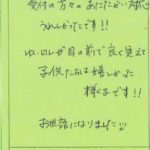 受付の方々のあたたかい対応
うれしかったです!!
目の前で良く見えて
子供たちは嬉しかった
様子です!!
お世話になりました